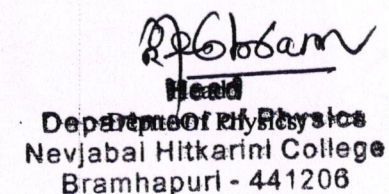 Head
Department of Physics
Nevjabai Hitkarini College
Bramhapuri - 441206